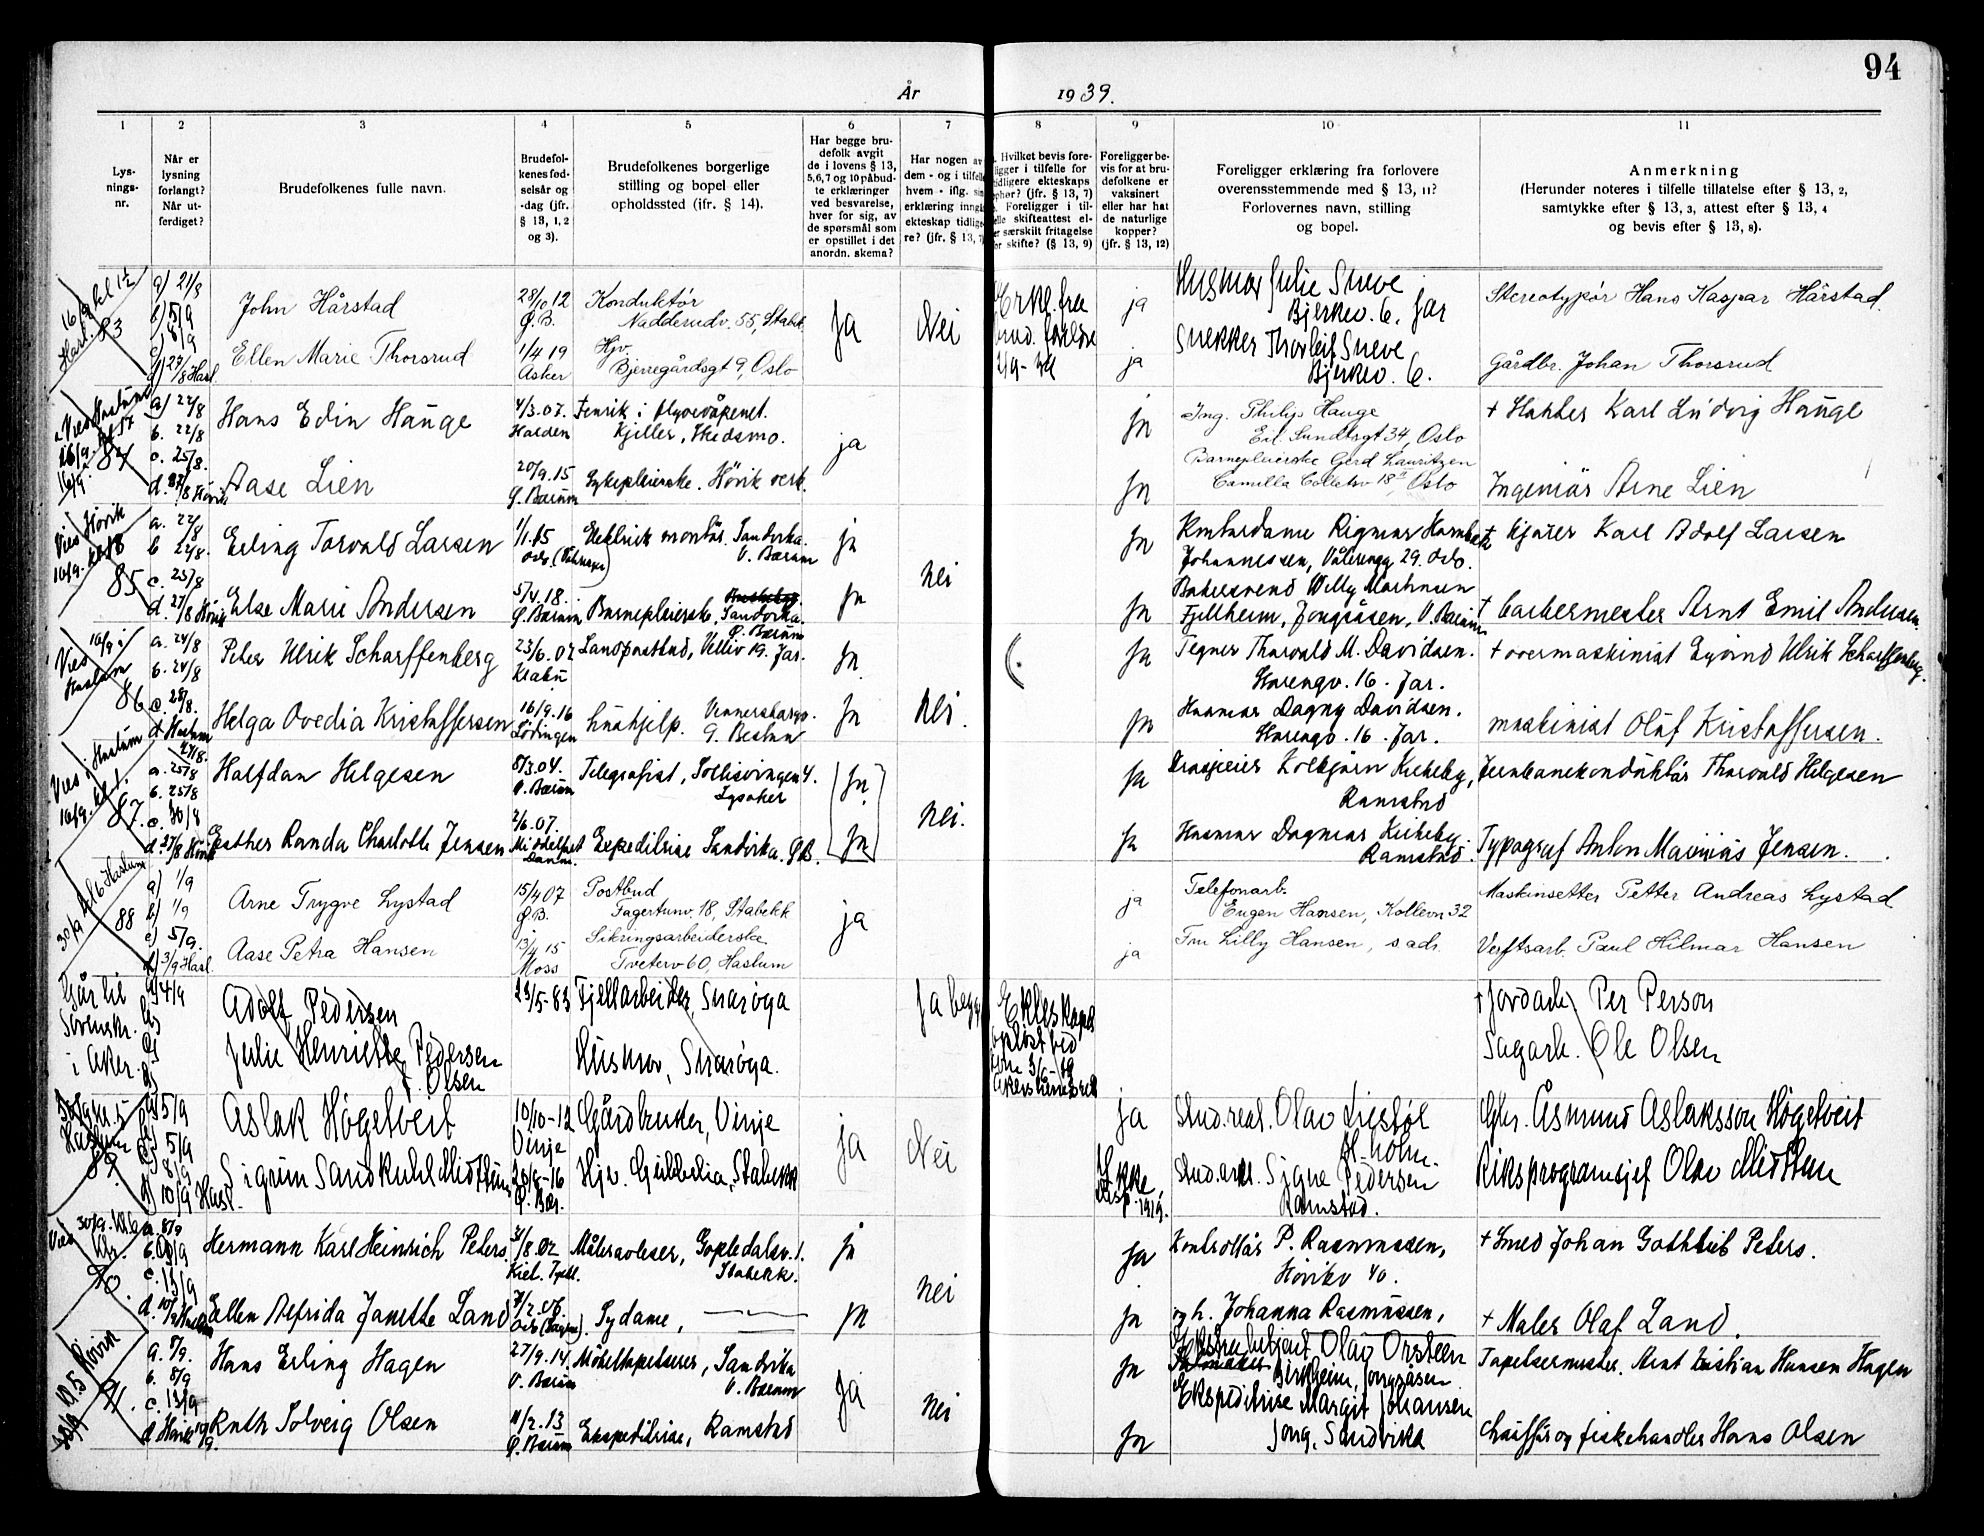 94
År 1939.
1 2 3 4 5 6 7 8 9 10 11
Lys-
nings-
nr.
Når er
lysning
forlangt?
Når ut-
ferdiget?
Brudefolkenes fulle navn.
Brudefol-
kenes fød-
selsår og
-dag (jfr.
§ 13, 1, 2
og 3).
Brudefolkenes borgerlige
stilling og bopel eller
opholdssted (ifr. § 14).
Har begge bru-
defolk avgit
de i lovens § 13,
5,6,7 og 10 påbud-
te erklæringer
ved besvarelse,
hver for sig, av
de spørsmål som
er opstillet i det
anordn. skema?
Har nogen av
dem - og i tilfelle
hvem - iflg. sin
erklæring inngå
ekteskap tidlige-
re? (jfr. § 13, 7)
Hvilket bevis fore-
ligger i tilfelle for
tidligere ekteskaps
ophør? (jfr. § 13, 7)
Foreligger i til-
felle skifteattest el-
er særskilt fritagelse
for skifte? (§ 13, 9)
Foreligger be-
vis for at bru-
defolkene er
vaksinert
eller har hat
de naturlige
kopper?
(jfr. § 13, 12)
Foreligger erklæring fra forlovere
overensstemmende med § 13, 11?
Forlovernes navn, stilling
og bopel.
Anmerkning
(Herunder noteres i tilfelle tillatelse efter § 13, 2,
samtykke efter § 13, 3, attest efter § 13, 4
og bevis efter § 13, 8).
83
a) 21/8
b) 5/9
c) 8/9
d) 27/8 Hasl.
John Hårstad
28/10 12
Ø.B.
Konduktør
Nadderudv. 55, Stabek
Ja
Nei
Erkl. fra
brud. foreldre
ja
Husmor Julie Sneve
Bjerkev. 6. Jar
Stereotypør Hans Kaspar Hårstad.
Ellen Marie Thorsrud
1/4 19
Asker
Hjv.
Bjerregårdsgt 9, Oslo
ja
Snekker Thorleif Sneve
Bjerkev. 6.
Gårdbr. Johan Thorsrud
84
a) 22/8
b. 22/8
c. 25/8.
d. 27/8 Høvik
Hans Edin Hauge
4/3.07.
Halden
Fenrik i flyvevåpenet.
Kjeller, Skedsmo.
ja
ja
Ing. Philip Hauge
Eil. Sundtsgt 34, Oslo
+ Slakter Karl Ludvig Hauge
Aase Lien
20/9.15
Ø. Bærum
Sykepleierske. Høvik verk.
ja
Barnepleierske Gerd Lauritzen
Camilla Colletsv 18, Oslo
Ingeniør Arne Lien
Vies Høvik
16/9. kl 18
85
a. 22/8
b 22/8.
c. 25/8
d. 27/8 Høvik
Erling Torvald Larsen
Elektrisk montør. Sandvika.
V. Bærum
ja
nei
ja
Kontordame Rigmor
Johannessen, Vålerengg 29. Oslo.
+ kjører Karl Adolf Larsen
Else Marie Andersen
Ø. Bærum
Barnepleierske, Sandvika.
Ø. Bærum
ja
ja
Bakersvend Willy
Fjellheim, Jongsåsen, V. Bærum
+ barbermester Arnt Emil Andersen.
Vies 16/9 i
Haslum
86
a. 24/8
b. 24/8
c. 28/8.
d Haslum
27/8.
Peter Ulrik Scharffenberg
23/6.02
Landpostbud, Vellīv 19. Jar.
ja
ja
Tegner Thorvald M. Davidsen.
Storengv. 16. Jar.
+ overmaskinist Eyvind Ulrik Scharffenberg.
Helga Ovedia Kristoffersen
16/9.16
Lødingen
Hushjelp.
Ø. Bestum
ja
nei.
ja
Husmor Dagny Davidsen.
Storengv. 16. Jar.
maskinist Oluf Kristoffersen.
Vies i Haslum
87.
a. 25/8
b. 25/8
c. 30/8
d. 27/8 Høvik
Halfdan Helgesen
8/3.04.
V. Bærum
Telegrafist, Sollisvingen 4.
Lysaker
ja
nei.
ja
Drosjeeier Kolbjørn Kirkeby,
Ramstad
Jernbanekonduktør Thorvald Helgesen
Esther Randa Charlotte Jensen
2/6.07.
Danm.
Expeditrise Sandvika. ØB.
ja
ja
Husmor Dagmar Kirkeby.
Ramstad.
Typograf Anton Marinius Jensen.
30/9 kl 6 Haslum
88
a) 1/9
b) 1/9
c) 5/9.
d) 3/9 Hasl.
Arne Trygve Lystad
15/4 07
Ø.B.
Postbud
Fagertunv. 18, Stabekk
ja
ja
Telefonarb.
Eugen Hansen, Kollevn 32
Maskinsetter Petter Andreas Lystad
Aase Petra Hansen
13/4 15
Moss
Sikringsarbeiderske
Tveterv 60, Haslum
ja
Fru Lilly Hansen, s adr.
Verftsarb. Paul Hilmar Hansen
Går til
Sorenskr.
i Aker.
a) 4/9
b)
c)
d)
Adolf Pedersen
23/5-83
Fjellarbeider, Snarøya
Ja begge
Ekteskapet
opløst ved
+ Jordarb. Per Person
Julie Henriette Pedersen
f. Olsen
Husmor, Snarøya.
Sagarb. Ole Olsen
Haslum
89.
a) 5/9
b) 5/9
c) 8/9
d) 10/9 Hasl.
Aslak Høgetveit
10/10-12
Vinje
Gårdbruker, Vinje
ja
Nei
ja
Stud.real. Olav Liestøl
Bl.holm.
Gbr. Åsmund Aslaksson Høgetveit
Sigrun Sandkuhl Midttun
Ø. Bær.
Hjv. Gubbelia, Stabekk
Ikke,
Disp. 1919.
Signe Pedersen
Ramstad.
Riksprogramsjef Olav Midttun
Vies
30/9. kl 6
90.
a. 8/9
b. 8/9
c. 13/9
d. 10/9 Haslum
Hermann Karl Heinrich Peters
Kiel. Tyskl.
Måleravleser, Gopledalsv. 1.
Stabekk.
ja
nei
ja
Kontrollør P. Rasmussen,
Høvikv 40.
+ Smed Johan Gothlieb Peters.
Ellen Alfrida Janette Land
Sydame,
ja
ja
og h. Johanna Rasmussen,
+ Maler Olaf Land.
30/9 kl. 5 Høvik
91.
a. 8/9.
b. 8/9
c. 13/9
d Høvik 10/9.
Hans Erling Hagen
27/9.14.
V. Bærum
Møbeltapetserer, Sandvika
V. Bærum
ja
nei
ja
Olav Orsteen
Bjerkheim, Jongsåsen
Tapetserermester. Arnt Kristian Hansen Hagen
Ruth Solveig Olsen
11/2.13
Ø. Bærum
Ekspeditrise, Ramstad
ja
Ekspeditrise Margit Johansen
Jong, Sandvika
Chauffør og fiskehandler Hans Olsen